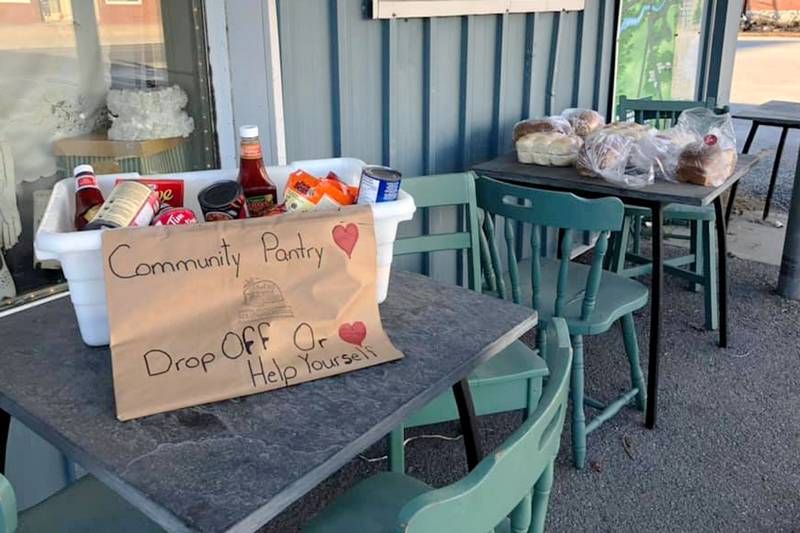 Community Pantry
Drop OFF Or
Help Yourself